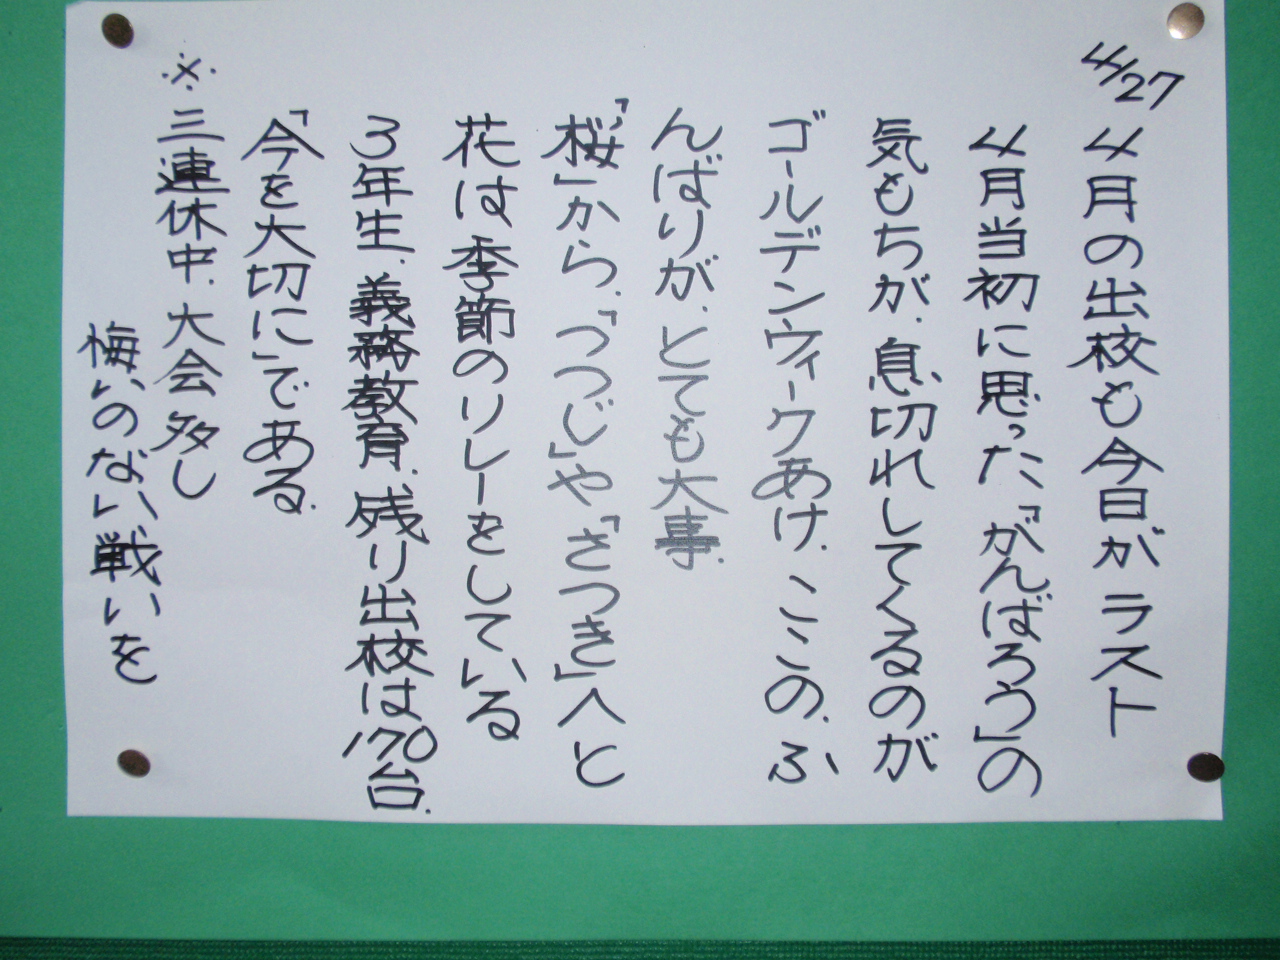 4/27
4月の出校も今日がラスト
4月当初に思った「がんばろう」の
気もちが、息切れしてくるのが
ゴールデンウィークあけ、ここの、ふ
んばりが、とても大事.
「桜」から、「つつじ」や「さつき」へと
花は季節のリレーをしている
3年生、義務教育、残り出校は170台.
「今を大切に」である.
※三連休中、大会多し
悔いのない戦いを